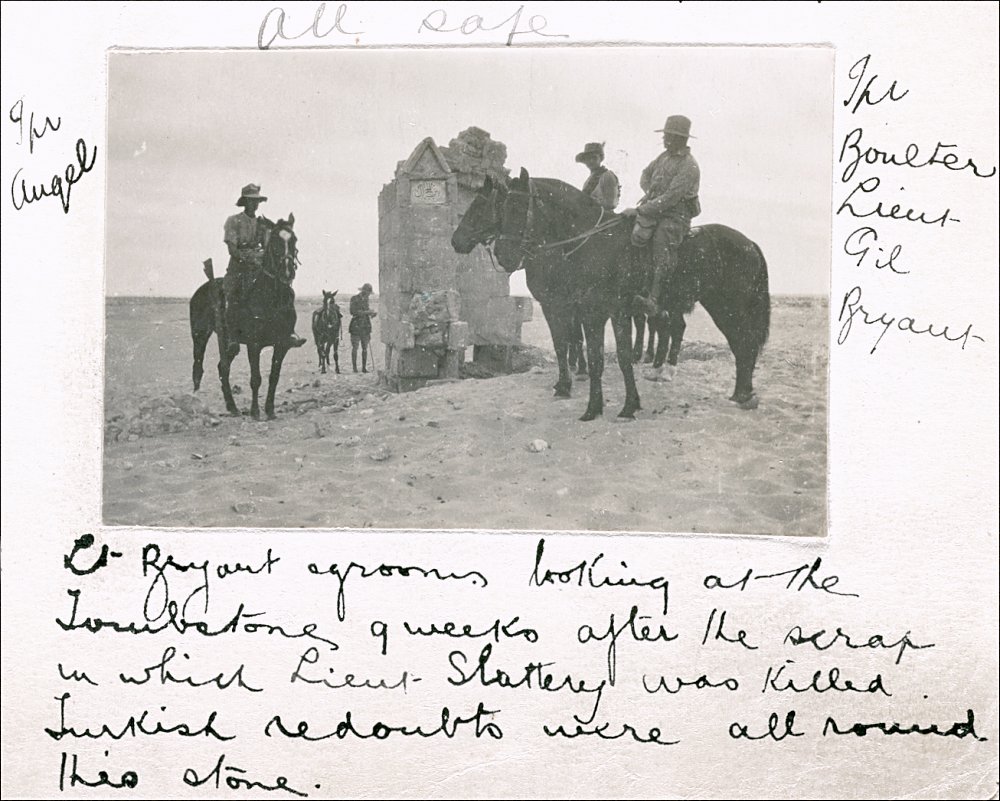 All safe
Tpr
Angel
Tpr
Boulter
Lieut
Gil
Bryant
Lt Bryant & grooms looking at the
Tombstone, 9 weeks after the scrap
in which Lieut Slattery was killed.
Turkish redoubts were all round
this stone.